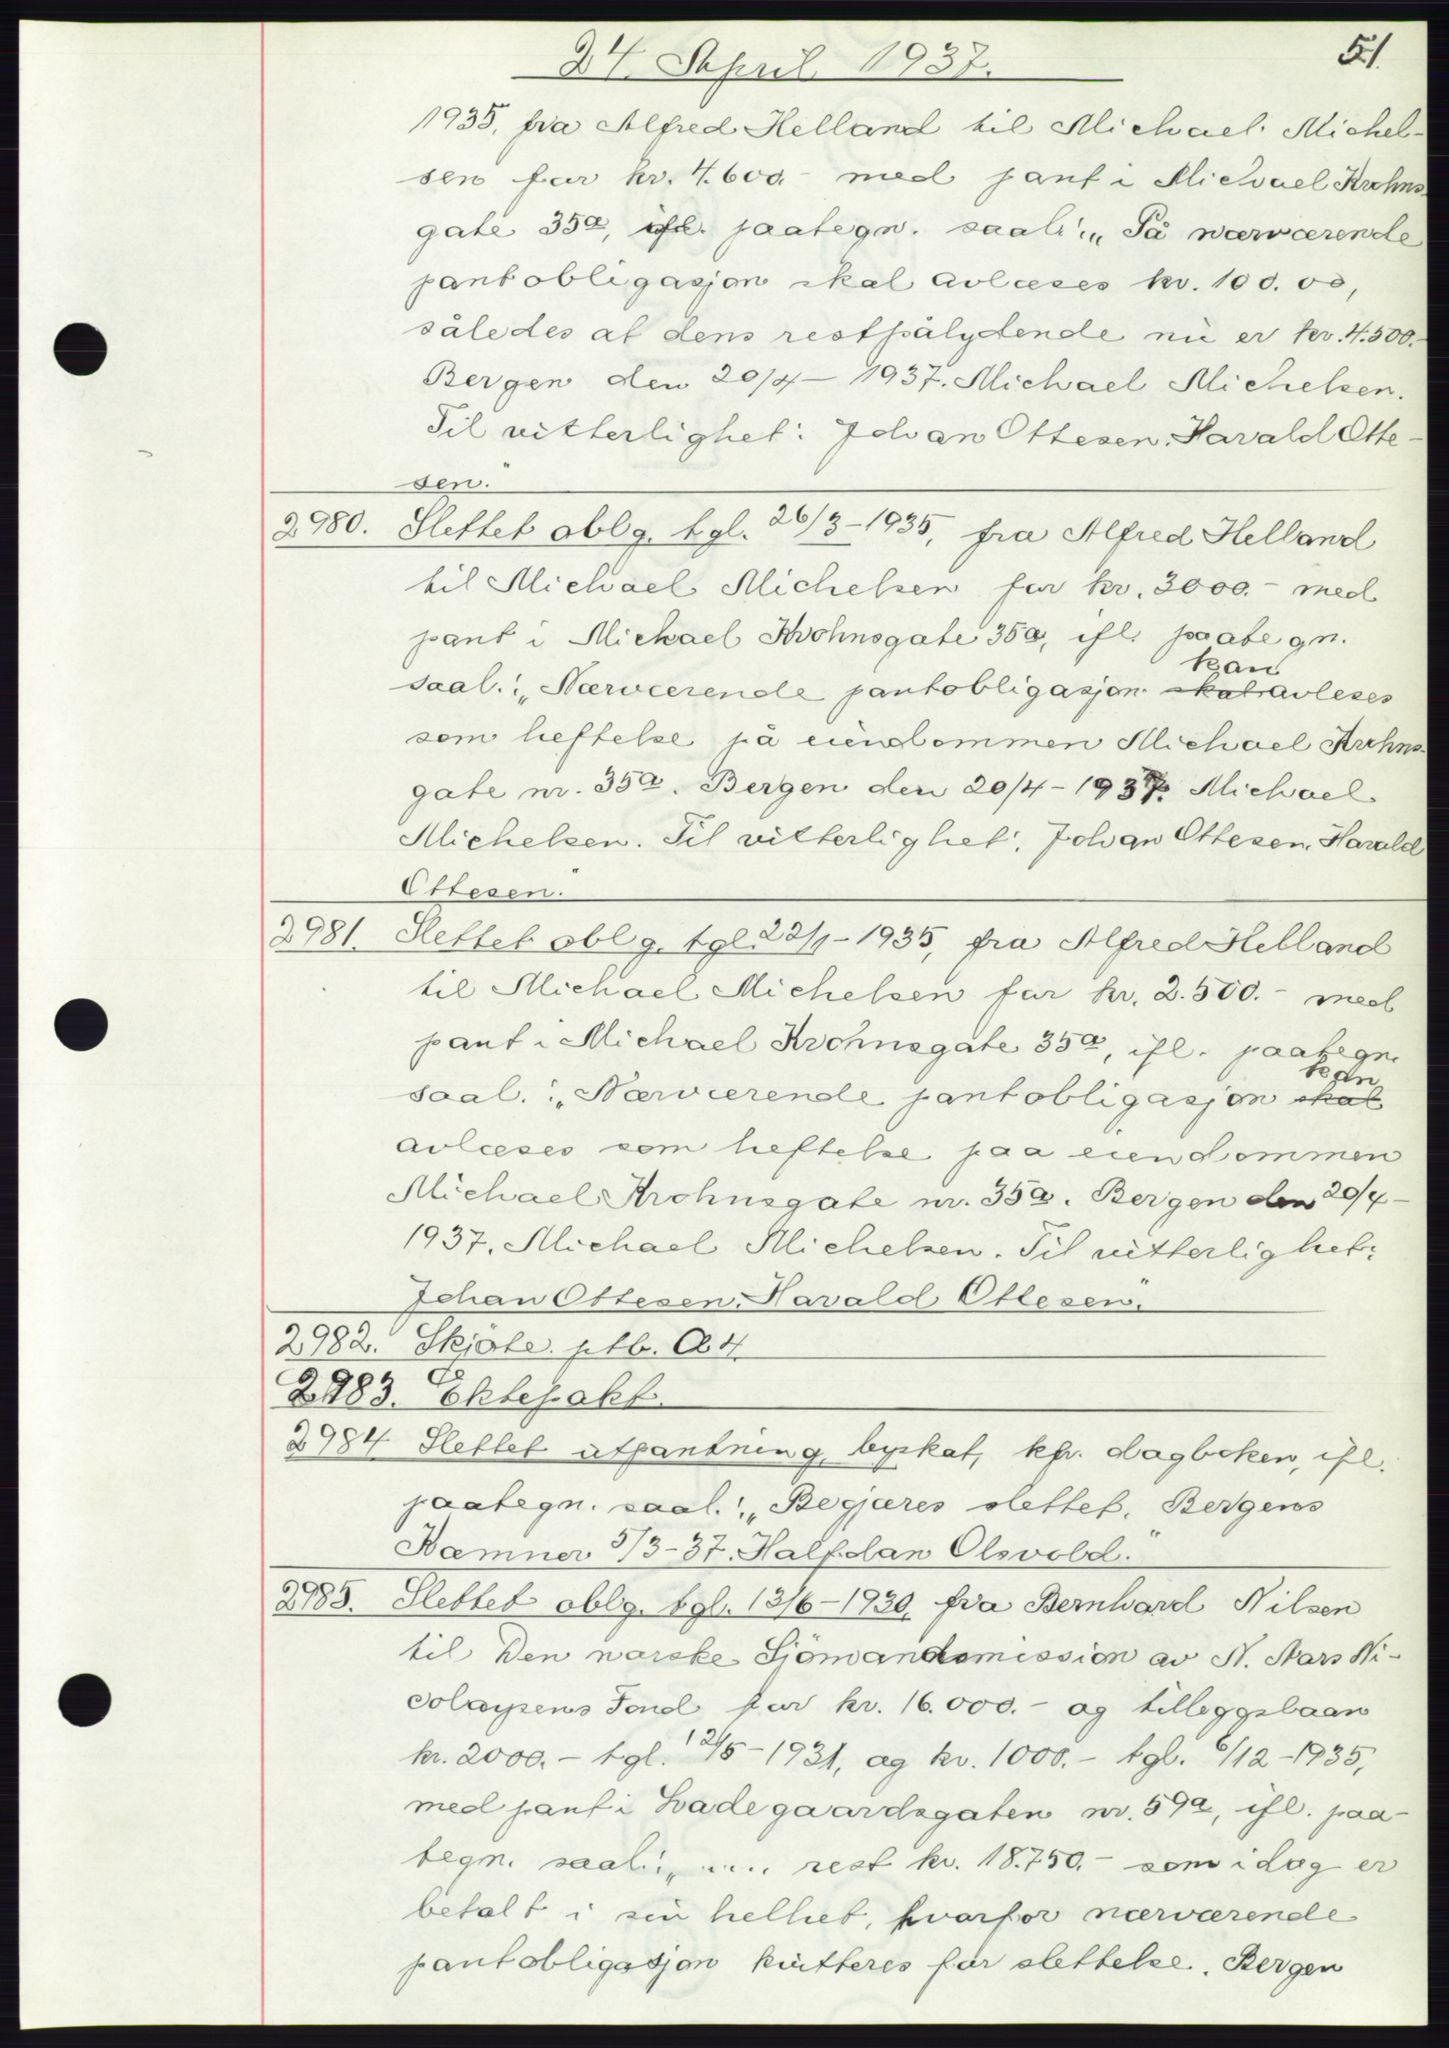 24. April 1937.
51.
1935, fra Alfred Helland til Michael Michel-
sen for kr. 4.600.- med pant i Michael Krohns-
gate 35a, ifl. paategn. saal.: „På nærværende
pantobligasjon skal avlæses kr. 100.00,
således at dens restpålydende nu er kr. 4.500.-
Bergen den 20/4-1937. Michael Michelsen.
Til vitterlighet: Johan Ottesen. Harald Otte-
sen."
2980. Slettet oblg. tgl. 26/3-1935, fra Alfred Helland
til Michael Michelsen for kr. 3000.- med
pant i Michael Krohnsgate 35a, ifl. paategn.
kan
saal.: „Nærværende pantobligasjon skal avleses
som heftelse på eiendommen Michael Krohns-
gate nr. 35a. Bergen den 20/4-1937. Michael
Michelsen. Til vitterlighet: Johan Ottesen. Harald
Ottesen."
2981. Slettet oblg. tgl. 22/1-1935, fra Alfred Helland
til Michael Michelsen for kr. 2.500.- med
pant i Michael Krohnsgate 35a, ifl. paategn.
kan
saal.: „Nærværende pantobligasjon skal
avlæses som heftelse paa eiendommen
Michael Krohnsgate nr. 35a. Bergen den 20/4-
1937. Michael Michelsen. Til vitterlighet:
Johan Ottesen. Harald Ottesen."
2982. Skjøte. ptb. A 4.
2983. Ektepakt.
2984 Slettet utpantning, byskat, kfr. dagboken, ifl.
paategn. saal.: „Begjæres slettet. Bergens
Kæmner 5/3-37. Halfdan Olsvold."
2985. Slettet oblg. tgl. 13/6-1930, fra Bernhard Nilsen
til Den norske Sjömandsmission av N. Nars Ni-
colaysens Fond for kr. 16.000.- og tilleggslaan
kr. 2000.- tgl. 12/5-1931, og kr. 1000.- tgl. 6/12-1935,
med pant i Ladegaardsgaten nr. 59a, ifl. paa-
tegn. saal.: „.... rest kr. 18.750.- som idag er
betalt i sin helhet, hvorfor nærværende
pantobligasjon kvitteres for slettelse. Bergen